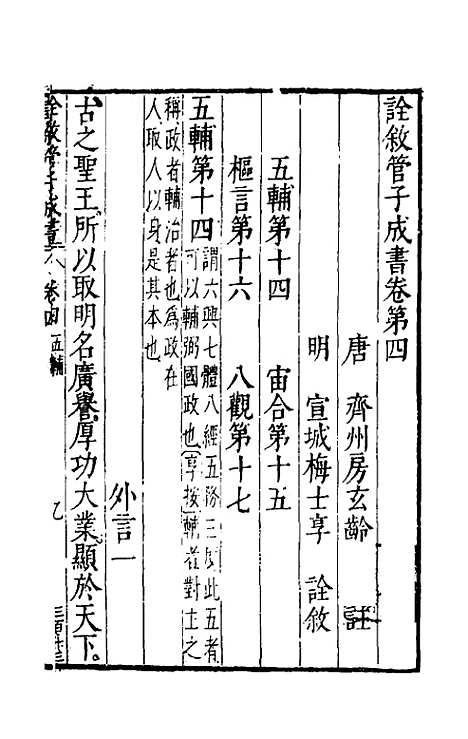 詮敘管子成書卷第四
唐　齊州房玄齡　註
明　宣城梅士享　詮敘
五輔第十四　宙合第十五
樞言第十六　八觀第十七
五輔第十四
謂六興七體八經五務三度此五者
可以輔弼國政也享按輔者對主之
稱政者輔治者也為政在
人取人以身是其本也
外言一
古之聖王所以取明名廣譽厚功大業顯於天下。
詮敘管子成書
卷四
五輔